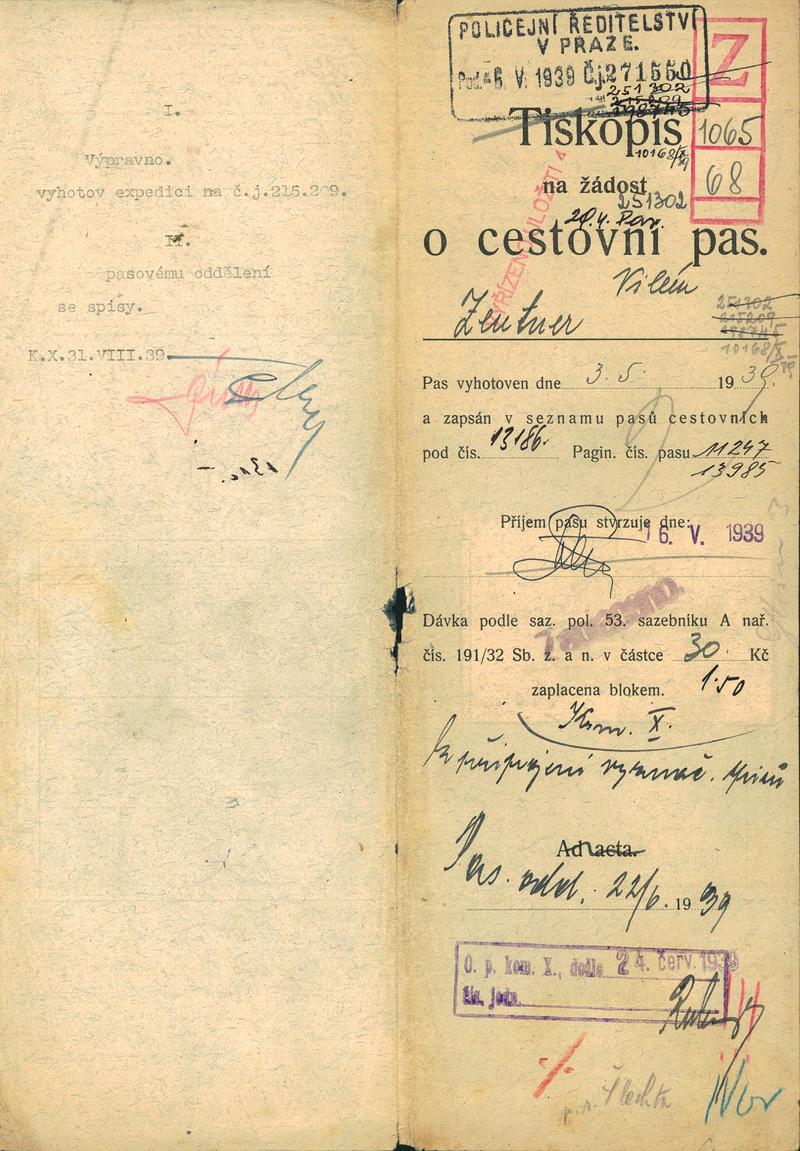 I.
Výpravno.
vyhotov expedici na č.j.215.209.
II.
pasovému oddělení
se spisy.
K.X.31.VIII.39.
POLICEJNÍ ŘEDITELSTVÍ
V PRAZE.
6. V. 1939 Čj. 271550
251302
215209
Z
1065
68
Tiskopis
10168/X
na žádost
251302
20.4.
o cestovní pas.
Vilém
Zentner
251302
215209
10168/X
Pas vyhotoven dne 3. 5. 1939.
a zapsán v seznamu pasů cestovních
pod čís. 13186. Pagin. čís. pasu 11247
13985
Příjem pasu stvrzuje dne:
16. V. 1939
Dávka podle saz. pol. 53. sazebníku A nař.
čís. 191/32 Sb. z. a n. v částce 30 Kč
zaplacena blokem. 1·50
Kom. X.
k připojení spisů
Ad acta.
Pas. odd. 22/6. 1939
O. p. kom. X., došlo 24. červ. 1939
čís. jedn.